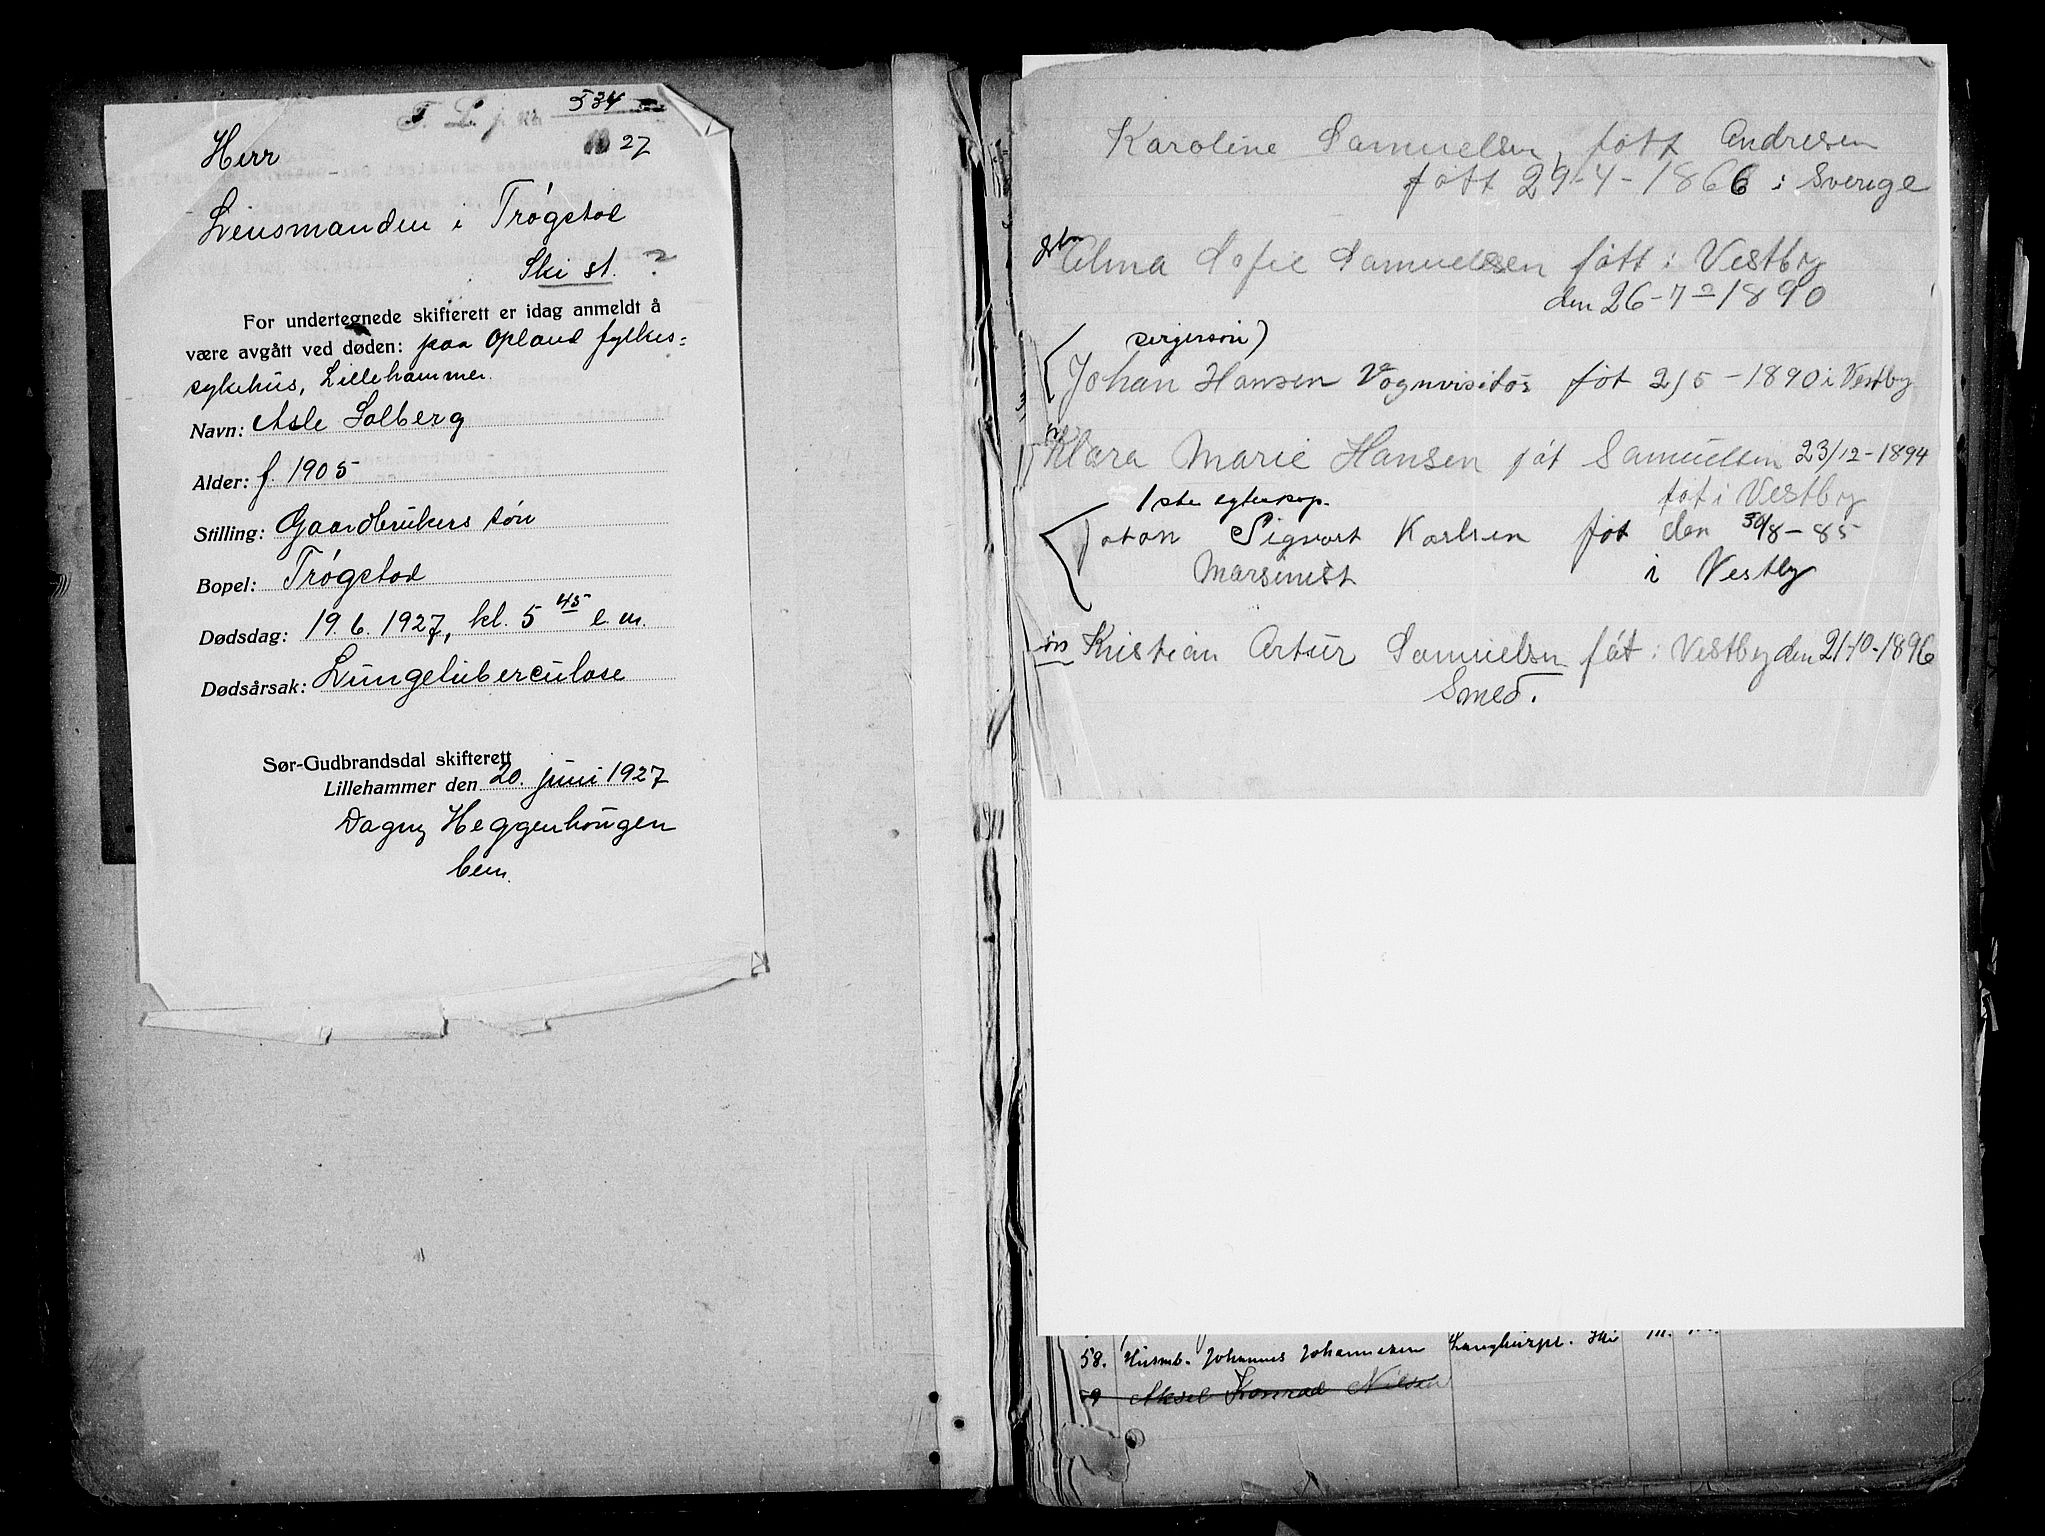 534
27
Herr
Lensmanden i Trøgstad
Ski st. ?
For undertegnede skifterett er idag anmeldt å
være avgått ved døden: paa Opland fylkes=
sykehus, Lillehammer.
Navn: Asle Solberg
Alder: f. 1905
Stilling: Gaardbrukers søn
Bopel: Trøgstad
Dødsdag: 19. 6. 1927, kl. 5 45 e. m.
Dødsårsak: Lungetuberculose
Sør-Gudbrandsdal skifterett
Lillehammer den 20. juni 1927
Dagny Heggenhougen
bem.
Karoline Samuelsen, føtt Andresen
føtt 29-4-1866 i Sverige
Alma Sofie Samuelsen føtt i Vestby
den 26-7-1890
Johan Hansen Vognvisitør føt 2/5-1890 i Vestby
Klara Marie Hansen føt Samuelsen 23/12-1894
føt i Vestby
1ste egteskap.
Johan Sigvart Karlsen føt den 30/8-85
Marsinist i Vestby
Kristian Artur Samuelsen føt i Vestby den 21-10-1896
Smed.
58. Husmb. Johannes Johannesen Langhuspl. Ski
59 Aksel Konrad Nilsen